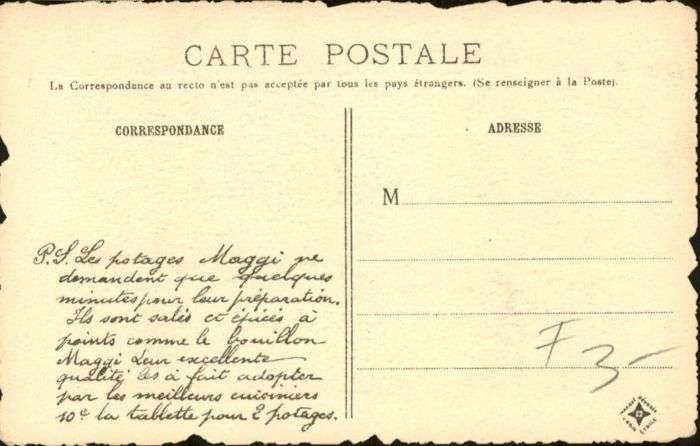 CARTE POSTALE
La Correspondance au recto n'est pas acceptée par tous les pays étrangers. (Se renseigner à la Poste).
CORRESPONDANCE
ADRESSE
M
P.S. Les potages Maggi ne
demandent que quelques
minutes pour leur préparation.
Ils sont salés et épicés à
points comme le bouillon
Maggi Leur excellente
qualité les a fait adopter
par les meilleurs cuisiniers
10c la tablette pour 2 potages.
F 3-